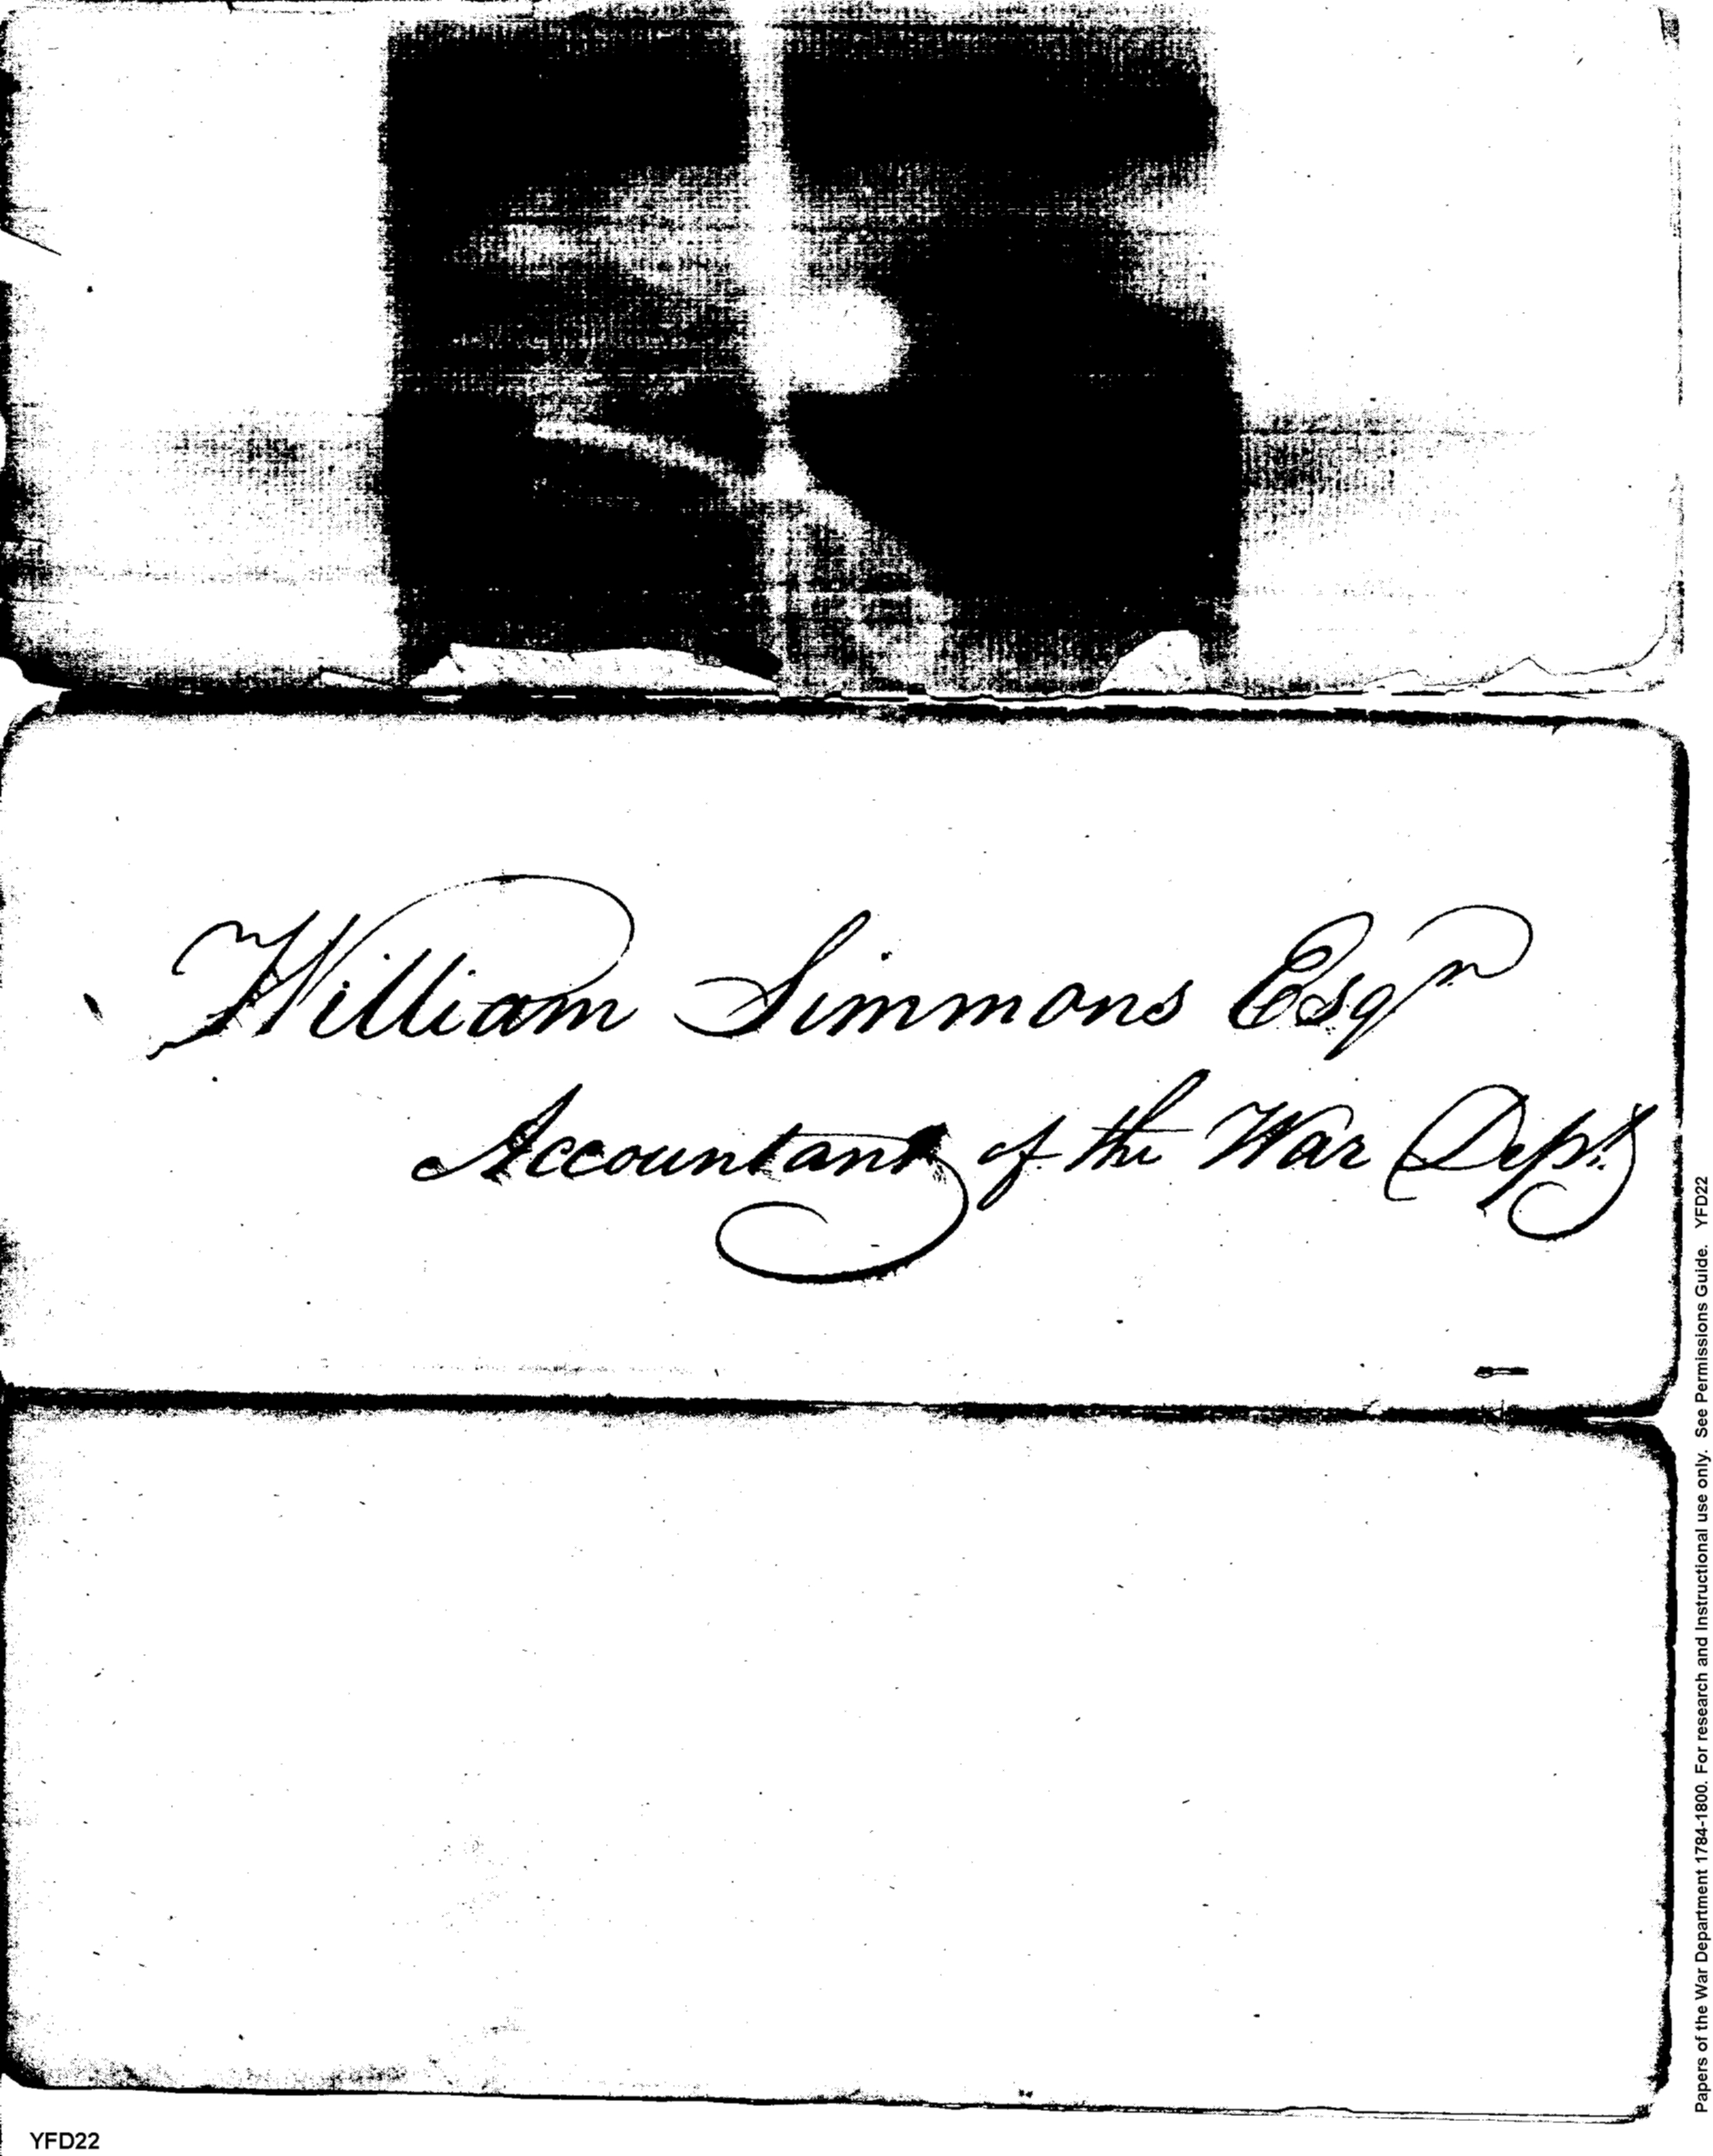 William Simmons Esqr
Accountant of the War Dept
Papers of the War Department 1784-1800. For research and Instructional use only. See Permissions Guide. YFD22
YFD22